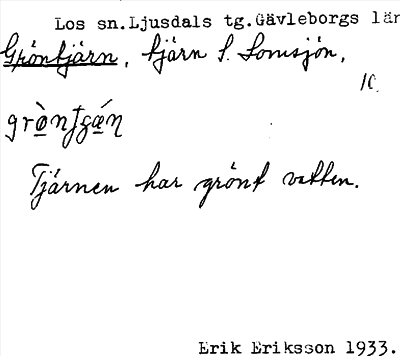 Los sn. Ljusdals tg. Gävleborgs län
Gröntjärn, tjärn S. Lomsjön,
10.
Tjärnen har grönt vatten.
Erik Eriksson 1933.